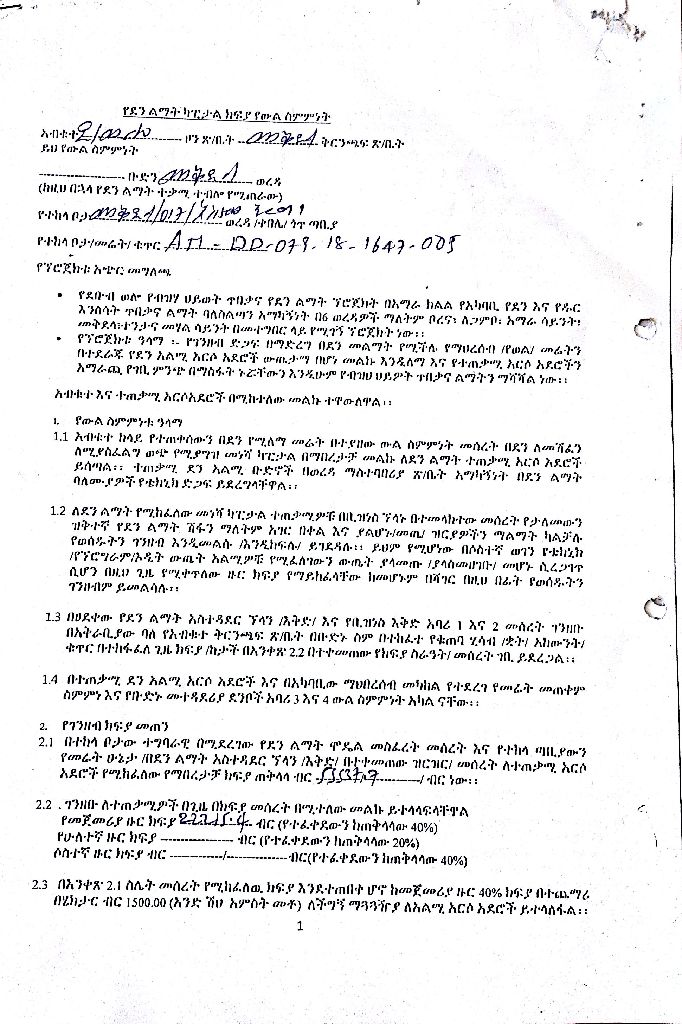 የደን ልማት ካፒታል ክፍያ የውል ስምምነት
አብቁተ ደ/ወሎ ዞን ጽ/ቤት መቅደላ ቅርንጫፍ ጽ/ቤት
ይህ የውል ስምምነት
ቡድን መቅደላ ወረዳ
(ከዚህ በኋላ የደን ልማት ተቃሚ ተብሎ የሚጠራው)
የተከላ ቦታ መቅደላ/017/ ወረዳ /ቀበሌ/ ጎጥ ጣቢያ
የተከላ ቦታ/መሬት/ ቁጥር AM-DD-079-18-1647-005
የፕሮጀክቱ አጭር መግለጫ
• የደቡብ ወሎ የብዝሃ ህይወት ጥበቃና የደን ልማት ፕሮጀክት በአማራ ክልል የአካባቢ የደን እና የዱር
እንስሳት ጥበቃና ልማት ባለስልጣን አማካኝነት በ6 ወረዳዎች ማለትም ቦረና፣ ለጋምቦ፣ አማራ ሳይንት፣
መቅደላ፣ተንታና መሃል ሳይንት በመተግበር ላይ የሚገኝ ፕሮጀክት ነው፡፡
• የፕሮጀክቱ ዓላማ ፡- የገንዘብ ድጋፍ በማድረግ በደን መልማት የሚችሉ የማህረሰብ /የወል/ መሬትን
በተደራጁ የደን አልሚ አርሶ አደሮች ውጤታማ በሆነ መልኩ እንዲለማ እና የተጠቃሚ አርሶ አደሮችን
አማራጪ የገቢ ምንጭ በማስፋት ኑሯቸውን እንዲሁም የብዝሀ ህይዎት ጥበቃና ልማትን ማሻሻል ነው፡፡
አብቁተ እና ተጠቃሚ አርሶአደሮች በሚከተለው መልኩ ተዋውለዋል፡፡
1. የውል ስምምነቱ ዓላማ
1.1 አብቁተ ከላይ የተጠቀሰውን በደን የሚለማ መሬት በተያዘው ውል ስምምነት መሰረት በደን ለመሸፈን
ለሚያስፈልግ ወጭ የሚያግዝ መነሻ ካፒታል በማበረታቻ መልኩ ለደን ልማት ተጠቃሚ አርሶ አደሮች
ይሰጣል፡፡ ተጠቃሚ ደን አልሚ ቡድኖች በወረዳ ማስተባበሪያ ጽ/ቤት አማካኝነት በደን ልማት
ባለሙያዎች የቴክኒክ ድጋፍ ይደረግላቸዋል፡፡
1.2 ለደን ልማት የሚከፈለው መነሻ ካፒታል ተጠቃሚዎቹ በቢዝነስ ፕላኑ በተመላከተው መሰረት የታለመውን
ዝቅተኛ የደን ልማት ሽፋን ማለትም አገር በቀል እና ያልሆኑ/መጤ/ ዝርያዎችን ማልማት ካልቻሉ
የወሰዱትን ገንዘብ እንዲመልሱ /እንዲከፍሉ/ ይገደዳሉ፡፡ ይህም የሚሆነው በሶስተኛ ወገን የቴክኒክ
/የፕሮግራም/ኦዲት ውጤት አልሚዎቹ የሚፈለገውን ውጤት ያላመጡ /ያላስመዘገቡ/ መሆኑ ሲረጋገጥ
ሲሆን በዚህ ጊዜ የሚቀጥለው ዙር ክፍያ የማይከፈላቸው ከመሆኑም በሻገር በዚህ በፊት የወሰዱትን
ገንዘብም ይመልሳሉ፡፡
1.3 በፀደቀው የደን ልማት አስተዳደር ፕላን /እቅድ/ እና የቢዝነስ እቅድ አባሪ 1 እና 2 መሰረት ገንዘቡ
በአትራቢያው ባለ የአብቁተ ቅርንጫፍ ጽ/ቤት በቡድኑ ስም በተከፈተ የቁጠባ ሂሳብ /ቋት/ አካውንት/
ቁጥር በተከፋፈለ ጊዜ ክፍያ /ከታች በአንቀጽ 2.2 በተቀመጠው የክፍያ ስራዓት/ መሰረት ገቢ ይደረጋል፡፡
1.4 በተጠቃሚ ደን አልሚ አርሶ አደሮች እና በአካባቢው ማህበረሰብ መካከል የተደረገ የመሬት መጠቀም
ስምምነ እና የቡድኑ መተዳደሪያ ደንቦች አባሪ 3 እና 4 ውል ስምምነት አካል ናቸው፡፡
2. የገንዘብ ክፍያ መጠን
2.1 በተከላ ቦታው ተግባራዊ በሚደረገው የደን ልማት ሞዴል መስፈረት መሰረት እና የተከላ ጣቢያውን
የመሬት ሁኔታ /በደን ልማት አስተዳደር ፕላን /እቅድ/ በተቀመጠው ዝርዝር/ መሰረት ለተጠቃሚ አርሶ
አደሮች የሚከፈለው የማበረታቻ ክፍያ ጠቅላላ ብር / ብር ነው፡፡
2.2 . ገንዘቡ ለተጠቃሚዎች በጊዜ በክፍያ መሰረት በሚተለው መልኩ ይተላላፍላቸዋል
የመጀመሪያ ዙር ክፍያ 22215.4 ብር (የተፈቀደውን ከጠቅላላው 40%)
የሁለተኛ ዙር ክፍያ ------------------ ብር (የተፈቀደውን ከጠቅላላው 20%)
ሶስተኛ ዙር ክፍያ ብር ------------/--------------- ብር(የተፈቀደውን ከጠቅላላው 40%)
2.3 በአንቀጽ 2.1 ስሌት መሰረት የሚከፈለዉ ክፍያ እንደተጠበቀ ሆኖ ከመጀመሪያ ዙር 40% ክፍያ በተጨማሪ
በሄክታር ብር 1500.00 (አንድ ሽህ አምስት መቶ) ለችግኝ ማጓጓዥያ ለአልሚ አርሶ አደሮች ይተላለፋል፡፡
1